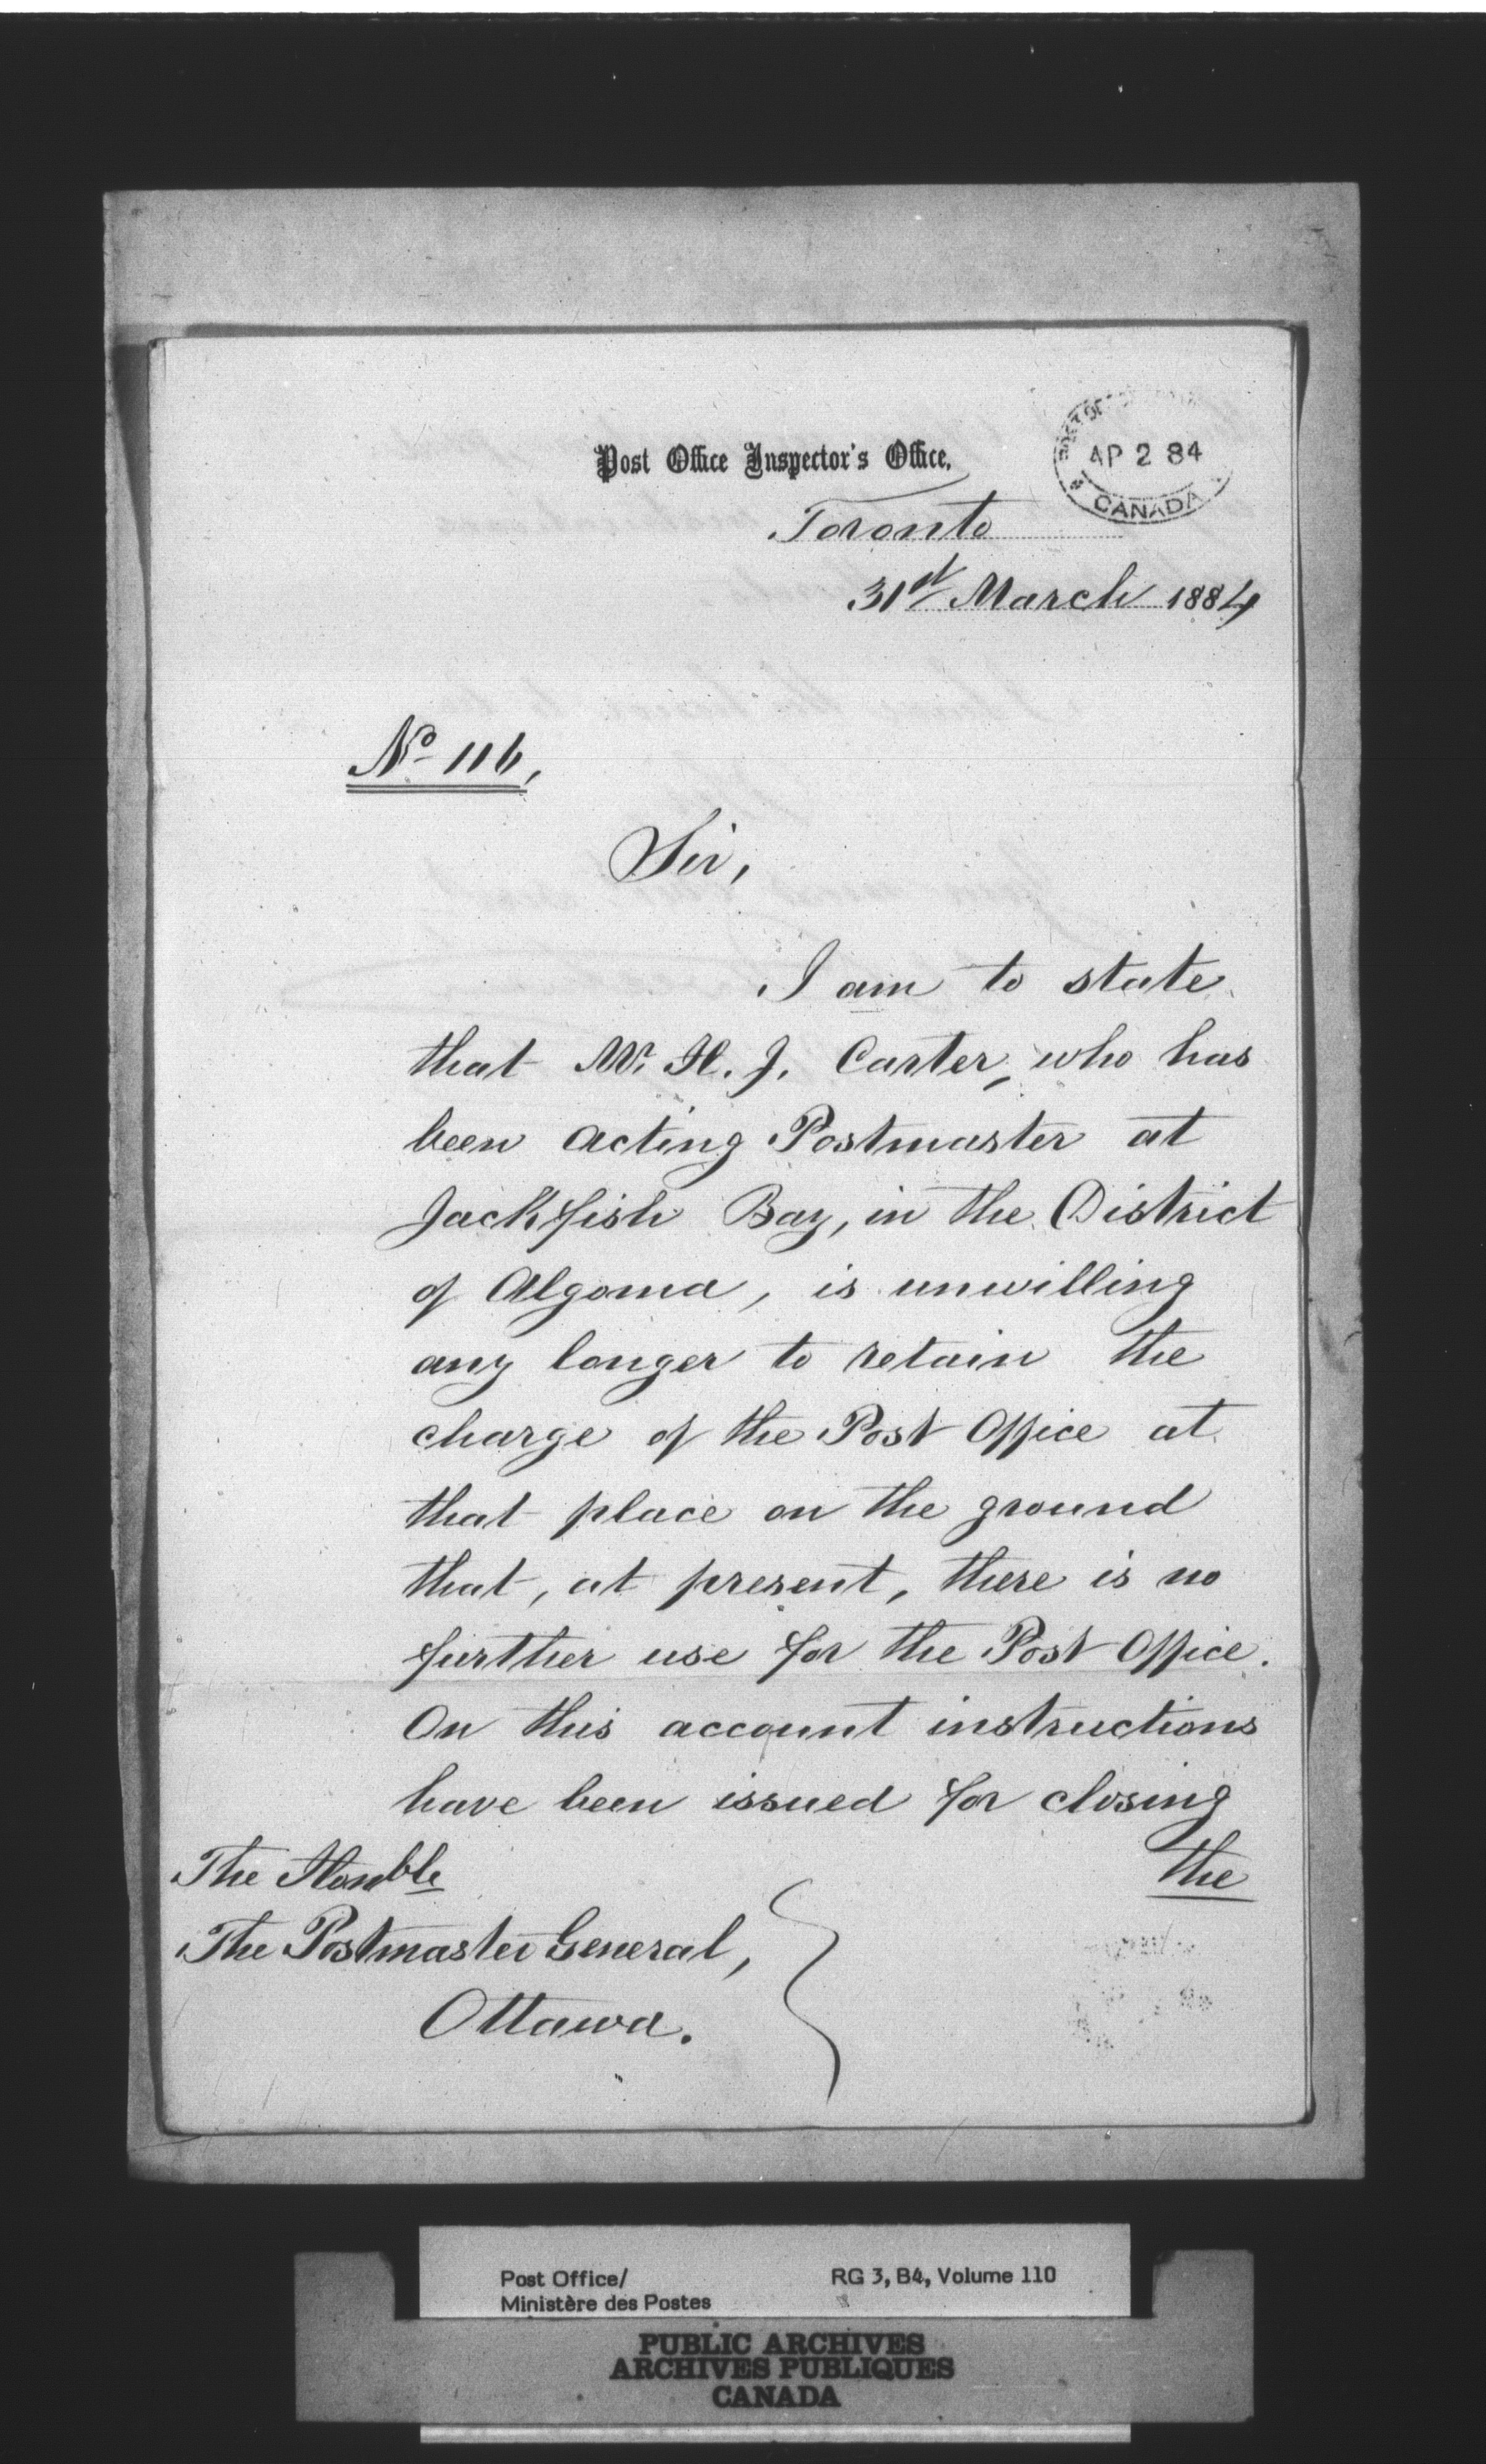 Post Office Inspector's Office.
AP 2 84
CANADA
Toronto
31st March 1884
No 116,
Sir,
I am to state
that Mr. H. J. Carter, who has
been acting Postmaster at
Jackfish Bay, in the District
of Algoma, is unwilling
any longer to retain the
charge of the Post Office at
that place on the ground
that, at present, there is no
further use for the Post Office.
On this account instructions
have been issued for closing
the
The Honble
The Postmaster General,
Ottawa.
Post Office/
Ministère des Postes
RG 3, B4, Volume 110
PUBLIC ARCHIVES
ARCHIVES PUBLIQUES
CANADA